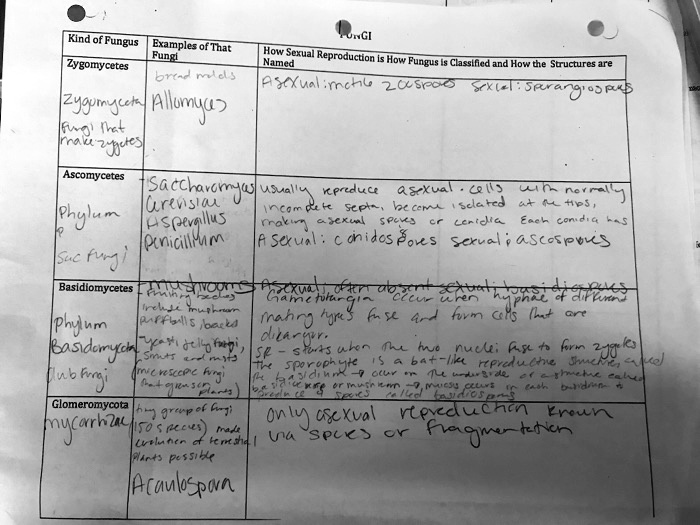 FUNGI
Kind of Fungus
Examples of That Fungi
How Sexual Reproduction is How Fungus is Classified and How the Structures are Named
Zygomycetes
Zygomycota
Fungi that
make zygotes
bread molds
Allomyces
Asexual: motile zoospores sexual: sporangiospores
Ascomycetes
Phylum
Sac Fungi
Saccharomyces
Cerevisiae
Aspergillus
Penicillium
usually reproduce asexual. cells with normally
incomplete septa, become isolated at the tips,
making asexual spores or conidia Each conidia has
Asexual: conidospores sexual: ascospores
Basidiomycetes
Phylum
Basidomycota
Club Fungi
mushrooms
Fruiting bodies
include mushroom
puffballs,
yeast, jelly fungi,
smuts and rusts
(microscopic fungi
that grows on
plants)
Asexual: often absent sexual: basidiospores
Gametotangia occur when hyphae of different
mating types fuse and form cells that are
dikaryon.
SR - starts when the two nuclei fuse to form zygotes
the sporophyte is a bat-like reproductive structure called
the basidium → occur on the underside of a structure called
or mushroom → miosis occurs in each basidium to
produce 4 spores called basidiospores
Glomeromycota
mycorrhizae
tiny group of fungi
(150 species) made
evolution of terrestrial
plants possible
Acaulospora
only asexual reproduction known
via spores or fragmentation